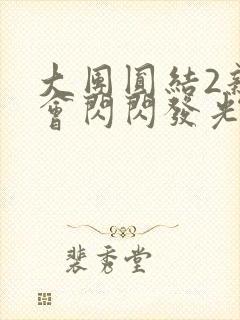 大團圓結2新
會閃閃發光
裴秀堂